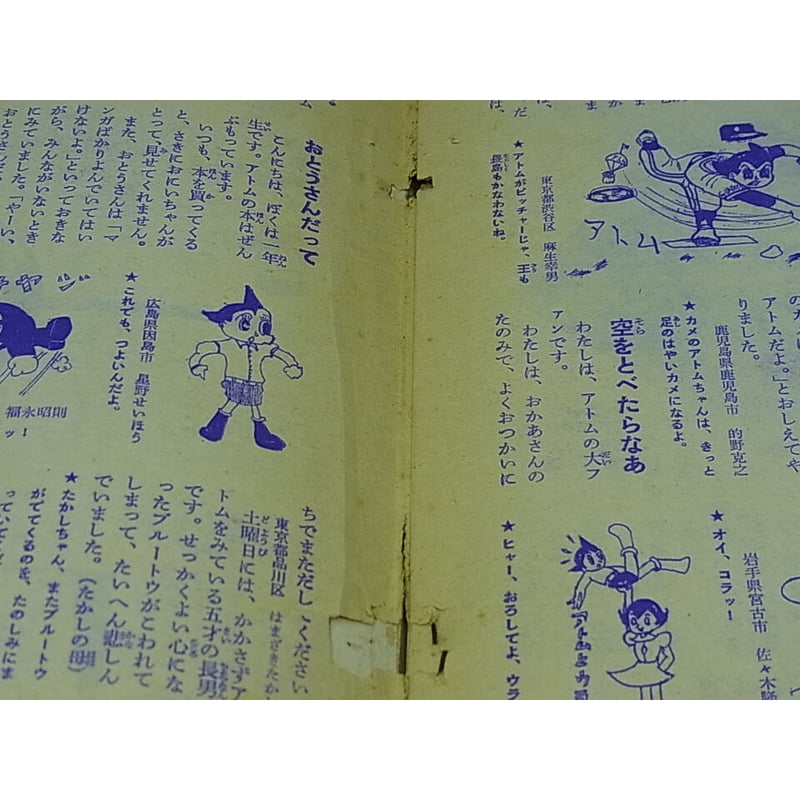 アトム
★アトムがピッチャーじゃ、王も
長島もかなわないね。
東京都渋谷区 麻生幸男
アトムだよ。」とおしえてや
りました。
鹿児島県鹿児島市 的野克之
★カメのアトムちゃんは、きっと
足のはやいカメになるよ。
空をとべたらなあ
わたしは、アトムの大フ
アンです。
わたしは、おかあさんの
たのみで、よくおつかいに
岩手県宮古市 佐々木
★オイ、コラッー
★ヒャー、おろしてよ、ウラ
おとうさんだって
こんにちは、ぼくは一年
生です。アトムの本はぜん
ぶもっています。
いつも、本を買ってくる
と、さきにおにいちゃんが
とって、見せてくれません。
また、おとうさんは「マ
ンガばかりよんでいてはい
けないよ。」といっておきな
がら、みんながいないとき
にみていました。「やーい、
広島県因島市 星野せいほう
★これでも、つよいんだよ。
福永昭則
ちでまただしてください
東京都品川区 はまざきたか
土曜日には、かかさずア
トムをみている五才の長男
です。せっかくよい心にな
ったプルートウがこわれて
しまって、たいへん悲しん
でいました。(たかしの母)
★たかしちゃん、またプルートウ
がでてくるのを、たのしみにま